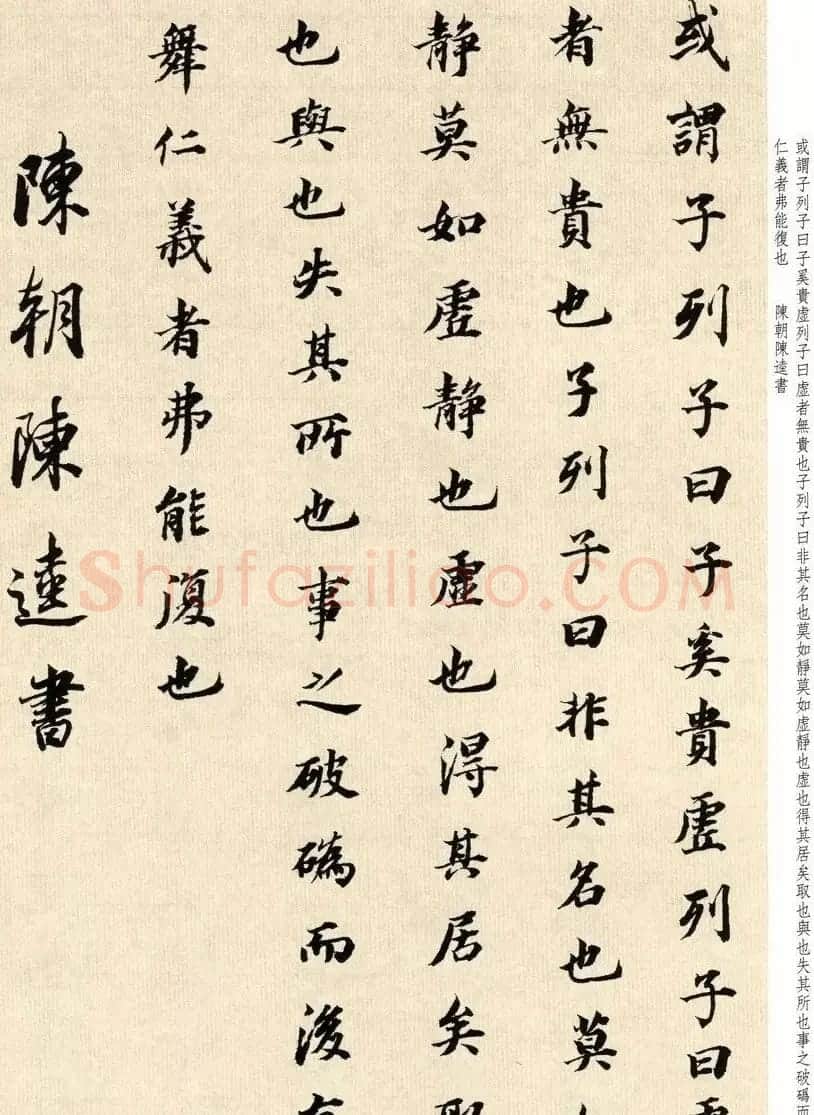 或謂子列子曰子奚貴虛列子曰
者無貴也子列子曰非其名也莫
靜莫如虛靜也虛也得其居矣
也與也失其所也事之破䃣而後
舞仁義者弗能復也
陳朝陳逵書
或謂子列子曰子奚貴虛列子曰虛者無貴也子列子曰非其名也莫如靜莫如虛靜也虛也得其居矣取也與也失其所也事之破碼而
仁義者弗能復也 陳朝陳逵書
Shufaziliao.COM